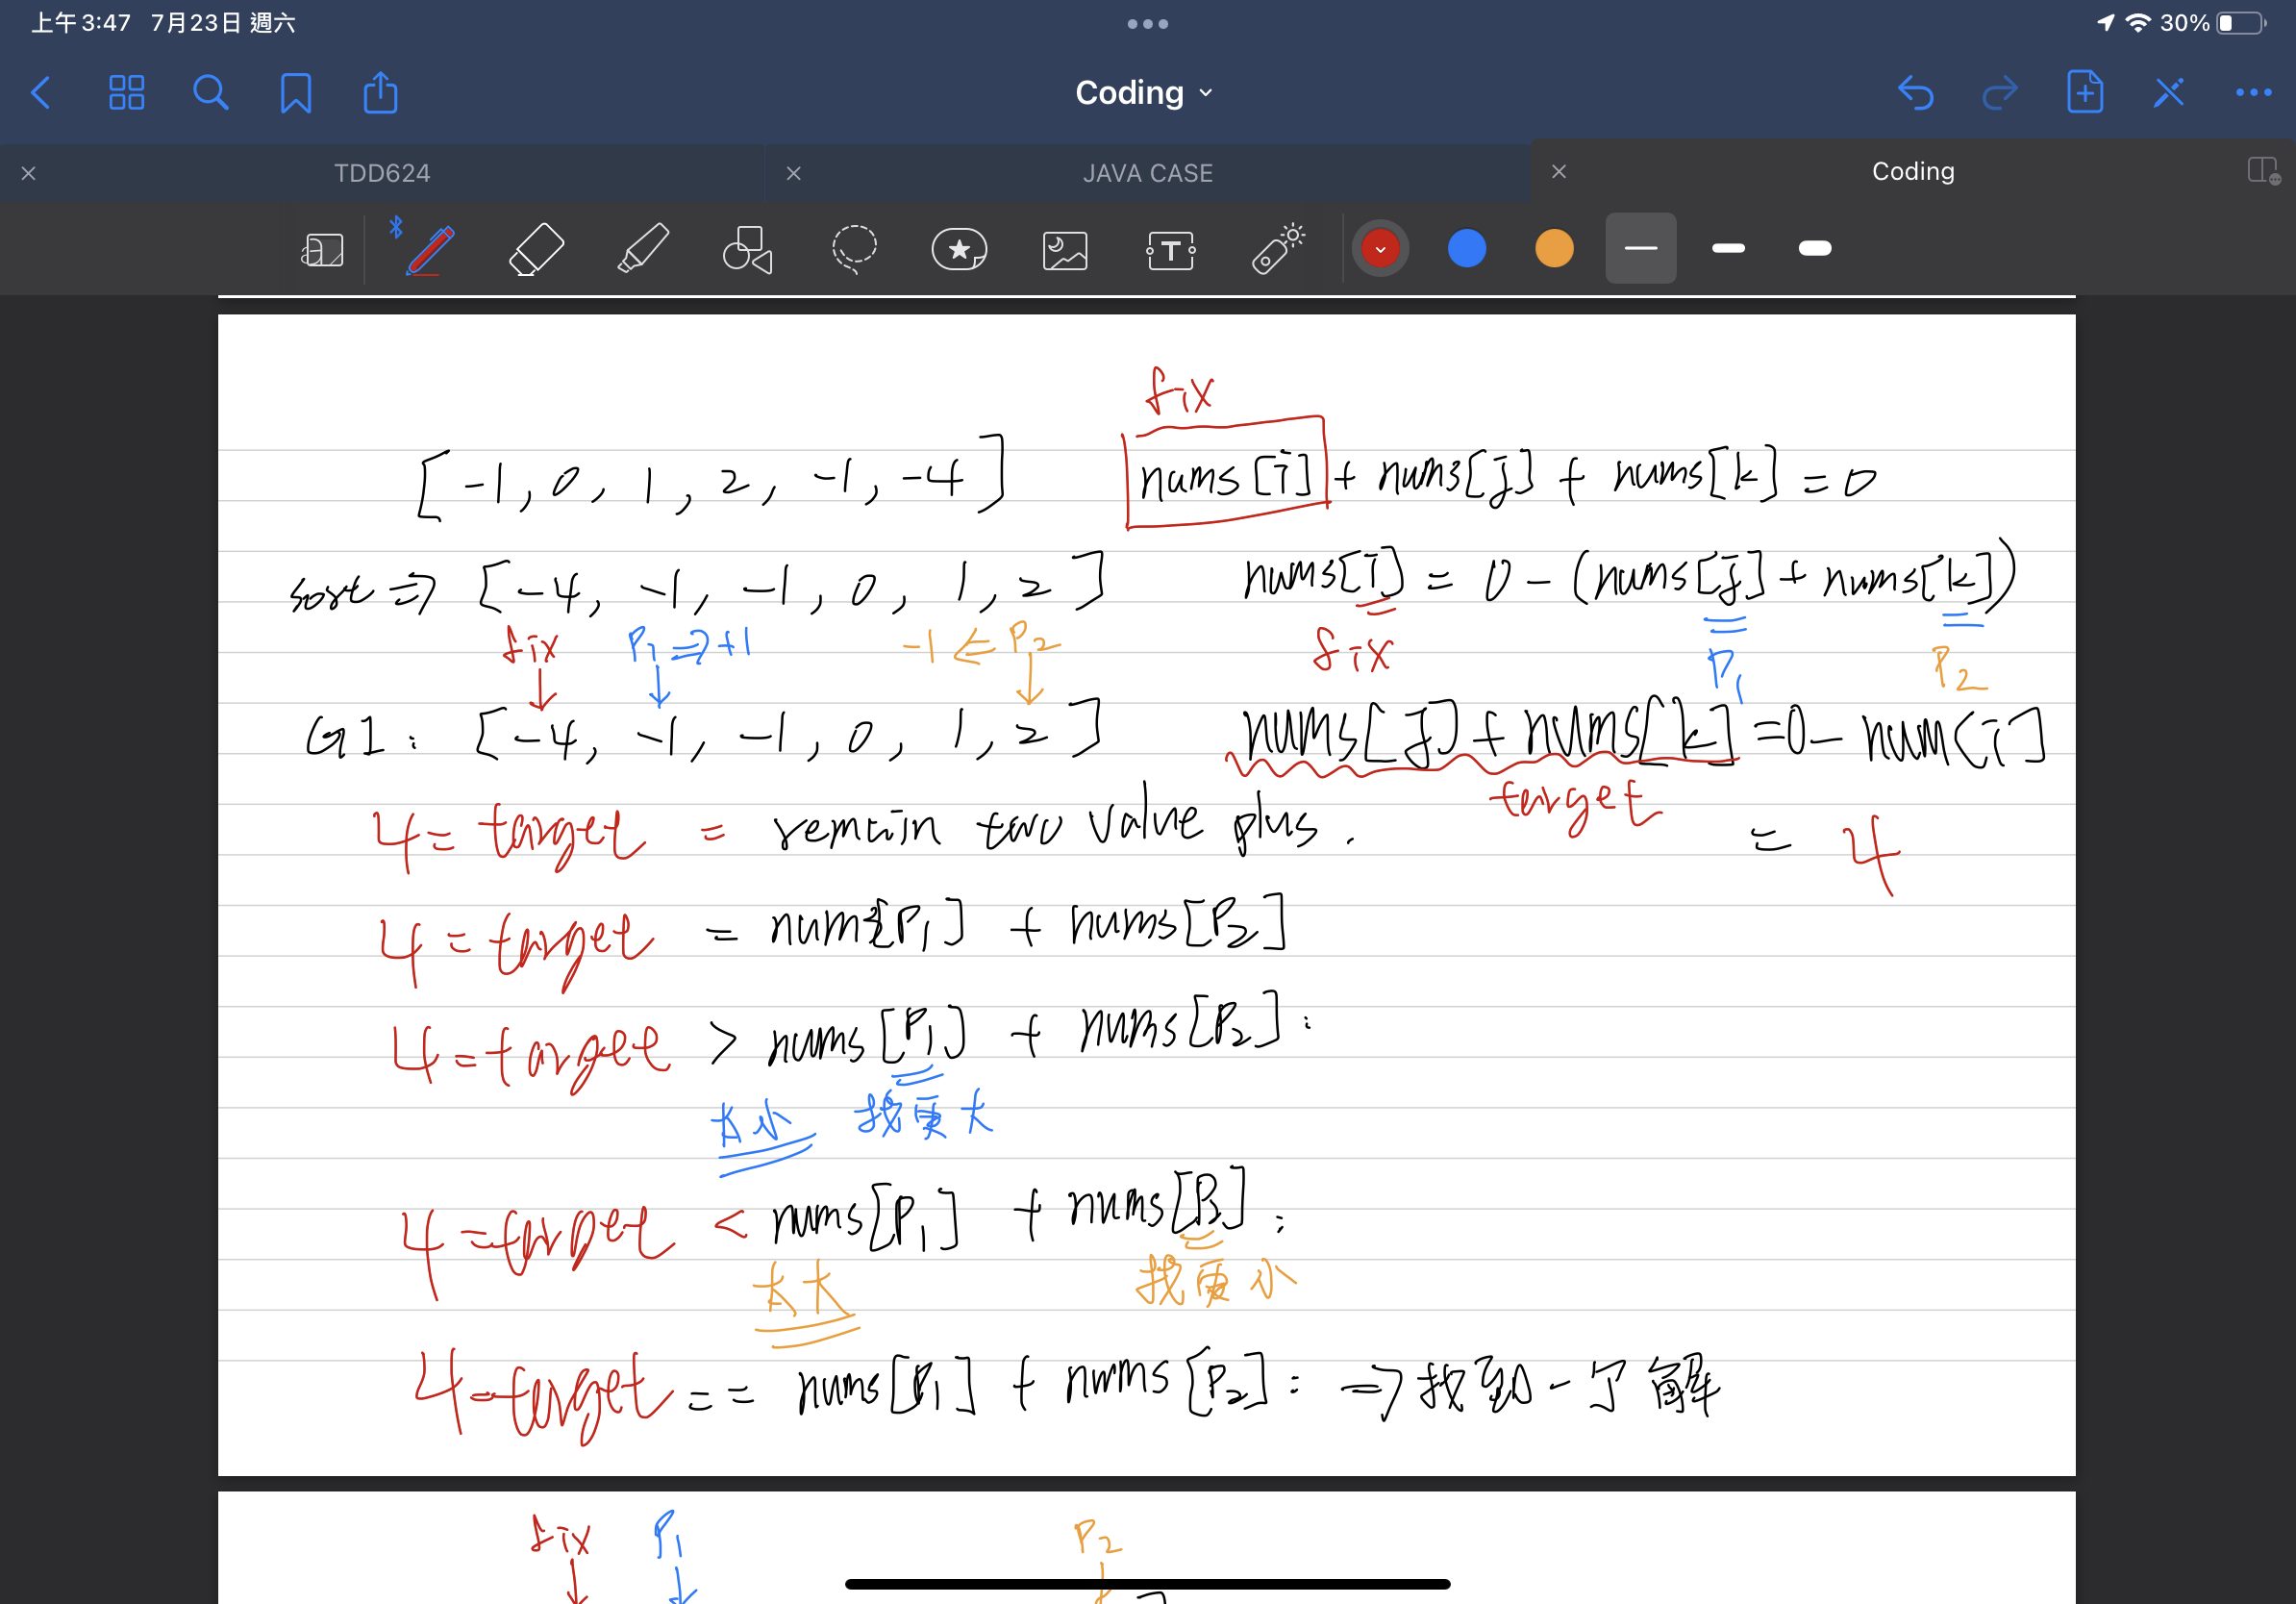 上午3:47 7月23日 週六
30%
Coding
TDD624
JAVA CASE
Coding
fix
[-1, 0, 1, 2, -1, -4] nums[i] + nums[j] + nums[k] = 0
sort ⇒ [-4, -1, -1, 0, 1, 2] nums[i] = 0 - (nums[j] + nums[k])
fix P1 ⇒ +1 -1 ⇐ P2 fix P1 P2
[-4, -1, -1, 0, 1, 2] nums[j] + nums[k] = 0 - num[i]
target
4 = target = remain two value plus. = 4
4 = target = nums[P1] + nums[P2]
4 = target > nums[P1] + nums[P2]:
太小 找更大
4 = target < nums[P1] + nums[P2]:
太大 找更小
4 = target == nums[P1] + nums[P2]: ⇒ 找到一了解
fix P1 P2